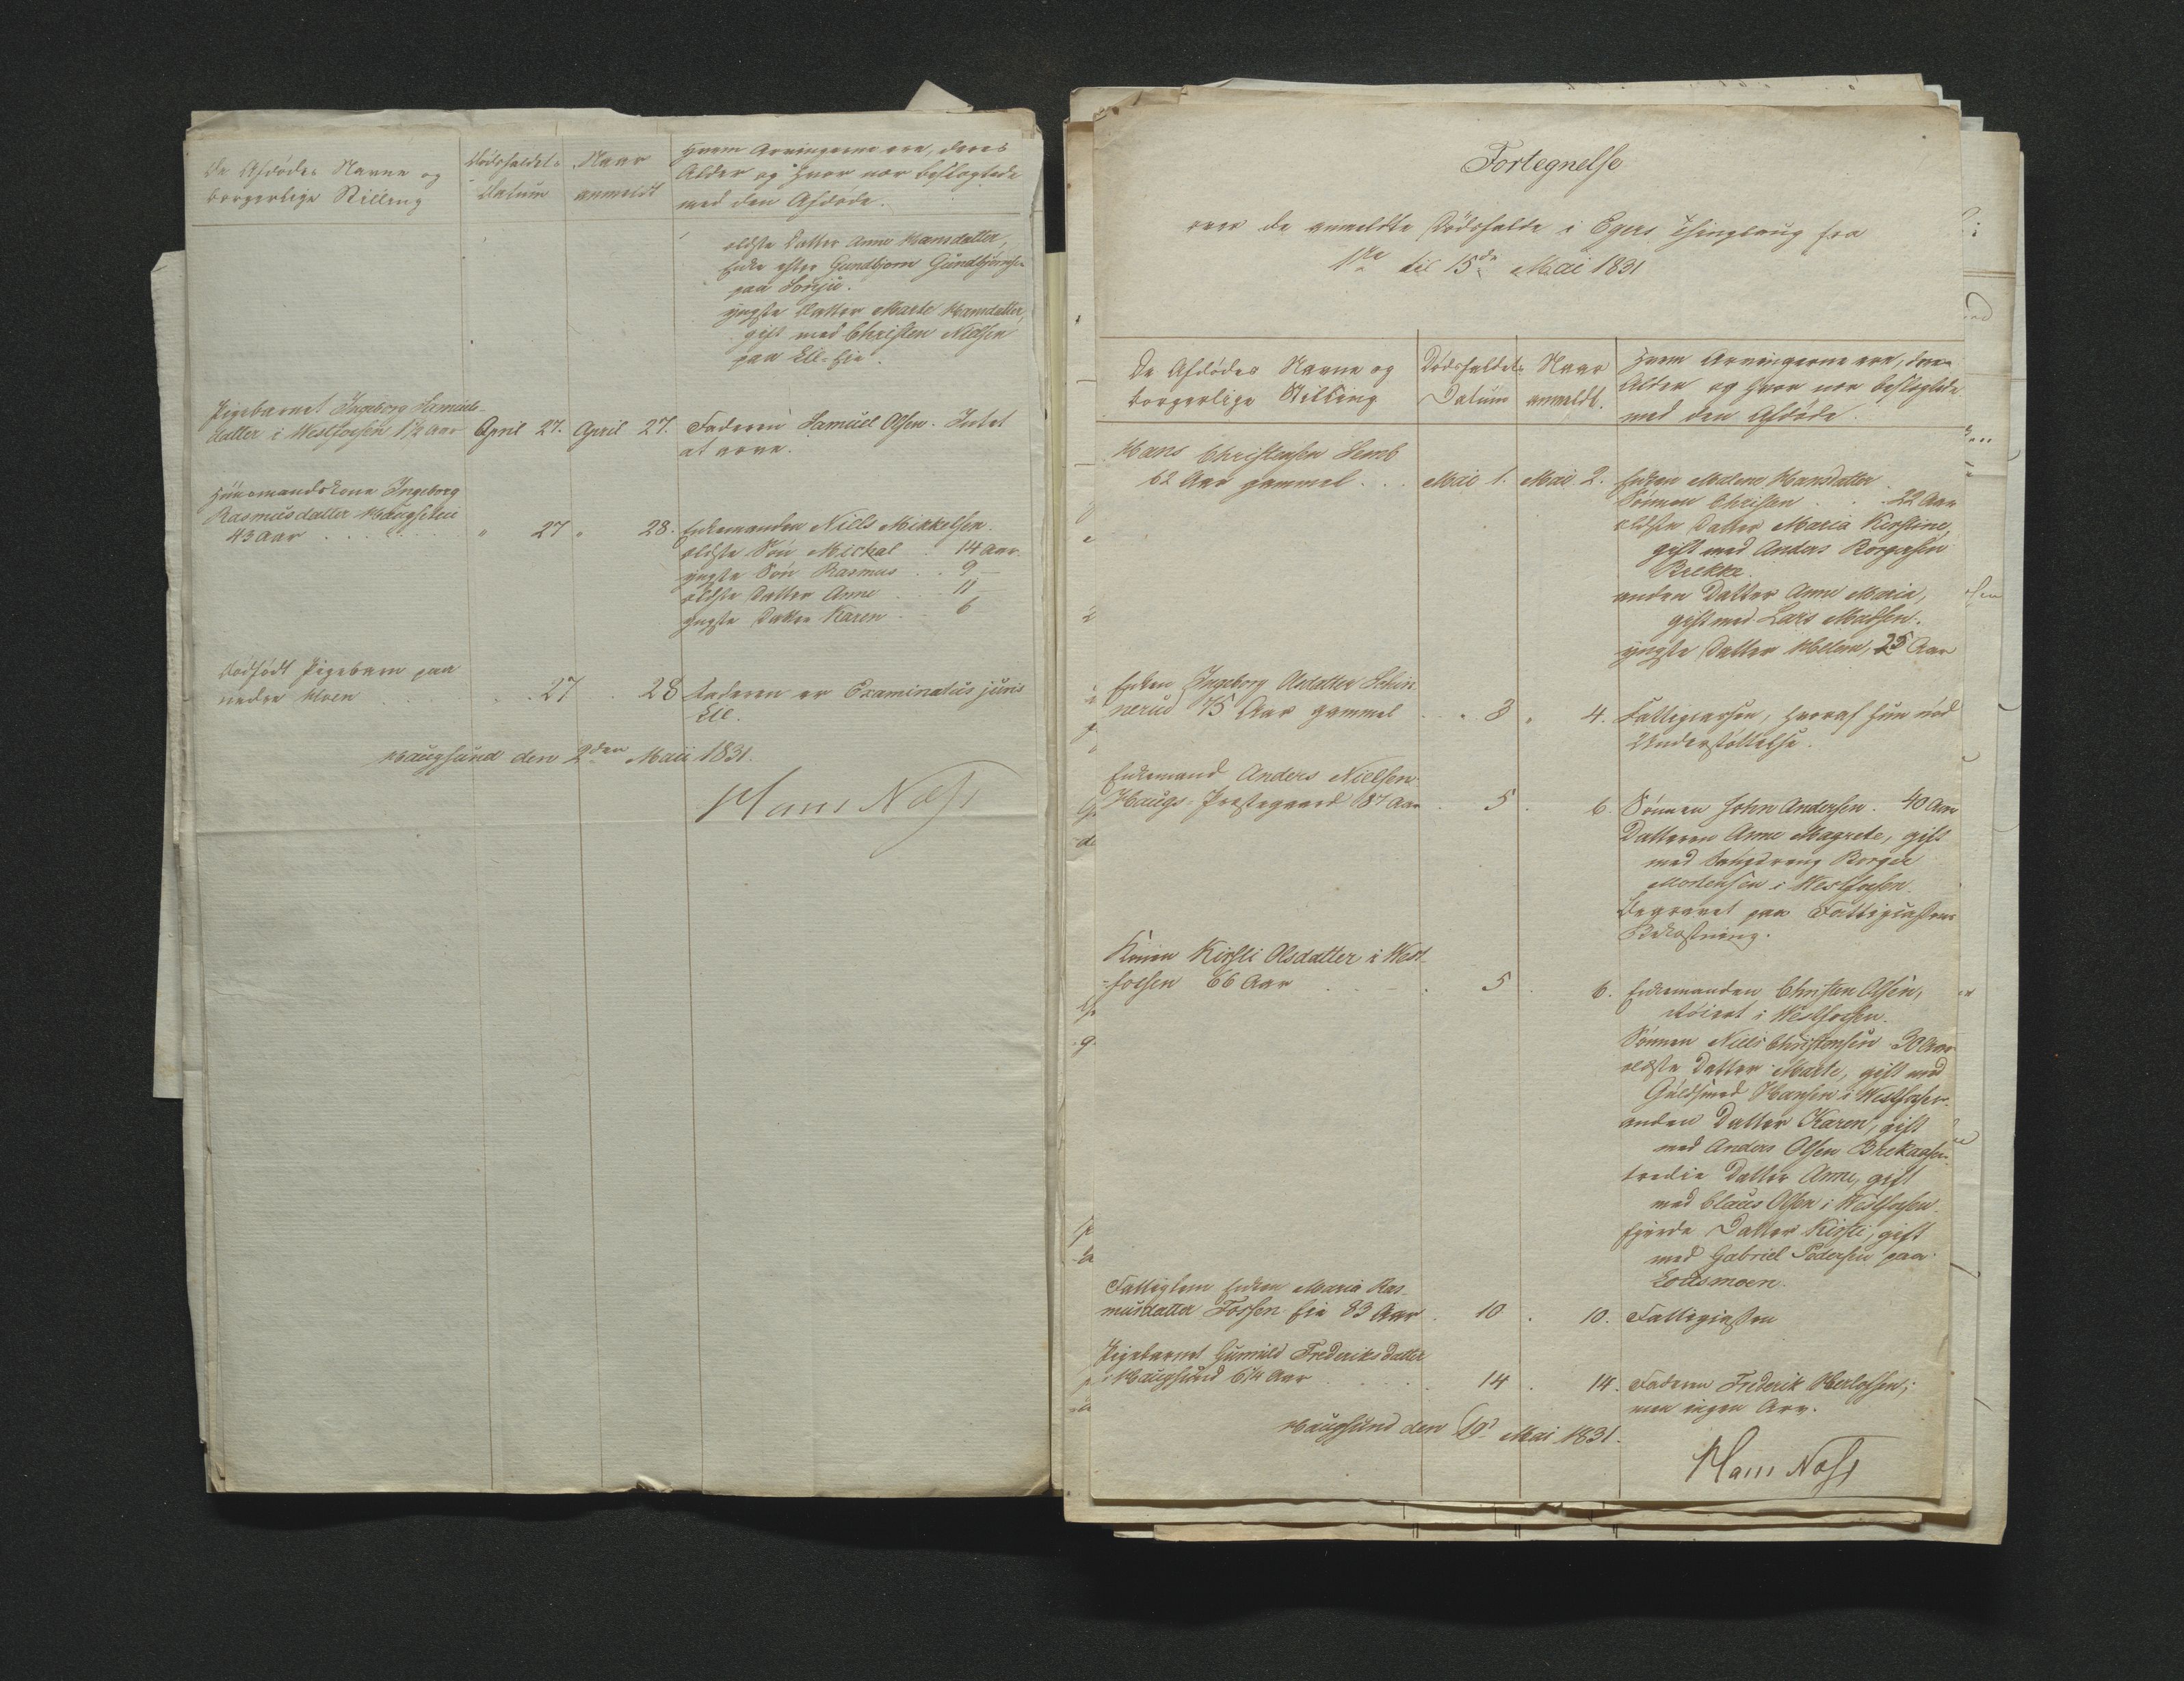 De Afdødes Navne og
borgerlige Stilling
Dødsfaldets
Datum
Naar
anmeldt
Hvem Arvingerne ere, deres
Alder og hvor nær beslægtede
med den Afdøde.
ældste Datter Anne Hansdatter,
Enke efter Gundbjørn Gundbjørnsen
paa
yngste Datter Marte Hansdatter,
gift med Christen Nielsen
paa Eie.
Pigebarnet Ingeborg Samuels-
datter i Westfossen 1½ Aar
April 27. April 27. Faderen Samuel Olsen. Intet
at arve.
Huusmandskone Ingeborg
Rasmusdatter
43 Aar
" 27 " 28. Enkemanden Niels Mikkelsen.
ældste Søn Mickal 14 Aar.
yngste Søn Rasmus 9 —
ældste Datter Anne 11 —
yngste Datter Karen 6
Dødfødt Pigebarn paa
nedre Hoen
27 28 Faderen er Examinatus juris
Haugsund den 2den Maii 1831.
Hans Næss
Fortegnelse
over de anmeldte Dødsfalde i Egers Thinglaug fra
1ste til 15de Mai 1831
De Afdødes Navne og
borgerlige Stilling
Dødsfaldets
Datum
Naar
anmeldt.
Hvem Arvingerne ere, deres
Alder og hvor nær beslægtede
med den Afdøde.
Hans Christensen Semb
62 Aar gammel
Mai 1. Mai 2. Enken Malene Hansdatter
Sønnen Christen 22 Aar
ældste Datter Maria Kirstine,
gift med Anders Borgersen
Brekke.
anden Datter Anne Maria,
gift med Lars Madsen.
yngste Datter Helene, 25 Aar
Enken Ingeborg
nerud 75 Aar gammel
3 4. Fattigcassen, hvoraf hun nød
Understøttelse.
Enkemand Anders Nielsen
Haugs-Præstegaard 87 Aar
5 6. Sønnen John Andersen. 40 Aar
Datteren Anne Magrete, gift
med Borger
Mortensen i Westfossen.
Begravet paa Fattigcassens
Bekostning.
Konen Kirsti Olsdatter i West-
-fossen 66 Aar
5 6. Enkemanden Christen Olsen,
i Westfossen.
Sønnen Niels Christensen 30 Aar
ældste Datter Marte, gift med
Guldsmed Hansen i Westfossen.
anden Datter Karen, gift
med Anders Olsen
tredie Datter Anne, gift
med Claus Olsen i Westfossen.
fjerde Datter Kirsti, gift
med Gabriel Pedersen paa
Loesmoen.
Fattiglem Enken Maria Ras-
musdatter Fossen Eie 83 Aar
10 10. Fattigcassen
Pigebarnet Gunnild Frederiksdatter
i Haugsund 6¼ Aar
14 14. Faderen Frederik
men ingen Arv.
Haugsund den Mai 1831.
Hans Næss